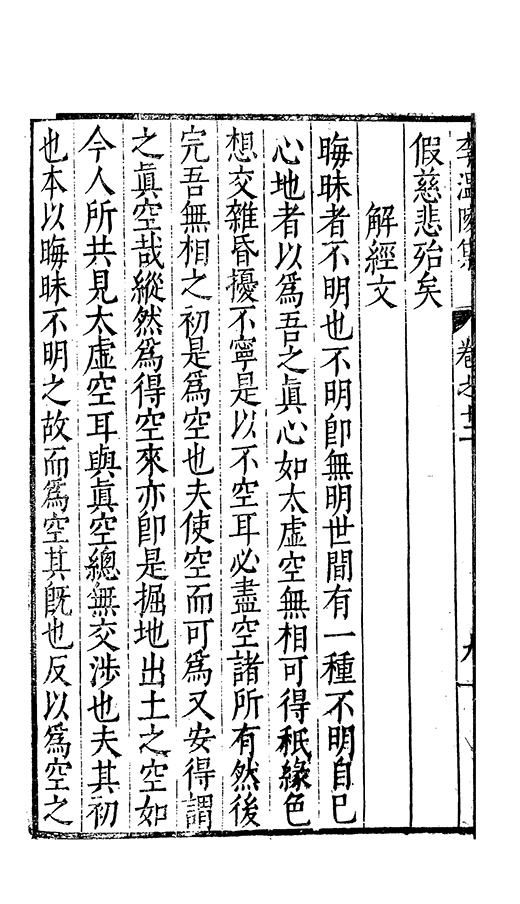 李溫陵集 卷之十二 九
假慈悲殆矣
解經文
晦昧者不明也不明卽無明世間有一種不明自已
心地者以爲吾之眞心如太虛空無相可得秪緣色
想交雜昏擾不寧是以不空耳必盡空諸所有然後
完吾無相之初是爲空也夫使空而可爲又安得謂
之眞空哉縱然爲得空來亦卽是掘地出土之空如
今人所共見太虛空耳與眞空總無交涉也夫其初
也本以晦昧不明之故而爲空其旣也反以爲空之